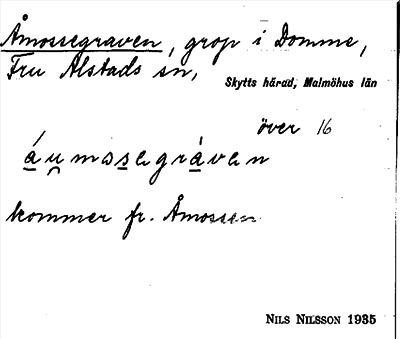 Åmossegraven, grop i Domme,
Fru Alstads sn,
Skytts härad, Malmöhus län
över 16
áu̯mosegràven
kommer fr. Åmossen
NILS NILSSON 1935